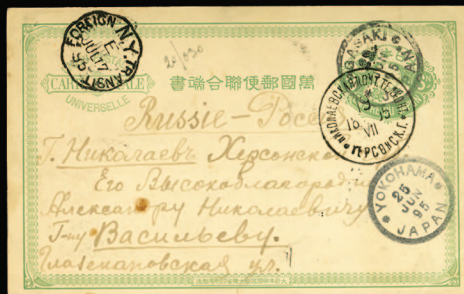 FOREIGN N.Y. TRANSIT
JUL 17
95
NAGASAKI
CARTE POSTALE
UNIVERSELLE
書端合聯便郵國萬
НИКОЛАЕВСК.
18
VII
ХЕРСОНСК.Г.
Russie - Россія
Г. Николаевъ Херсонской
Его Высокоблагородію
Александру Николаевичу
Г-ну Васильеву.
Глазенаповская ул.
YOKOHAMA
25
JUN
95
JAPAN